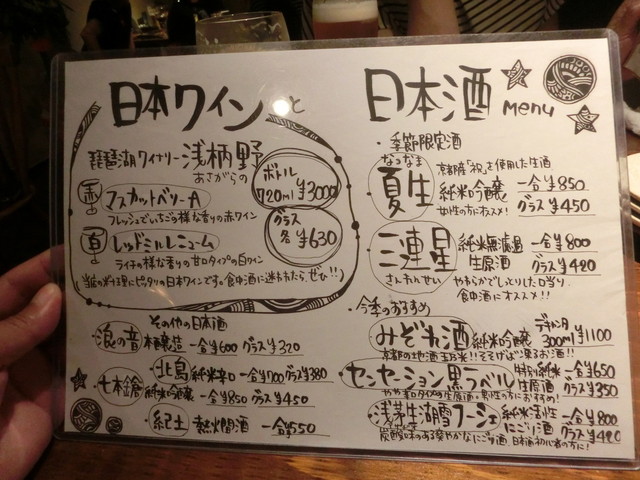 日本ワインと
琵琶湖ワイナリー浅柄野
あさがらの
赤 マスカットベリーA
フレッシュでいちごの様な香りの赤ワイン
白 レッドミルレニューム
ライチの様な香りの甘口タイプの白ワイン
ボトル
720ml ¥3000
グラス
各 ¥630
当店の料理にピッタリの日本ワインです。食中酒に迷われたら、ぜひ!!
その他の日本酒
浪の音 本醸造 一合¥600 グラス¥320
北島 純米辛口 一合¥700 グラス¥380
七本鎗 純米吟醸 一合¥850 グラス¥450
紀土 熱燗酒 一合¥550
日本酒 menu
・季節限定酒
なつなま
夏生
京都産「祝」を使用した生酒
純米吟醸 一合¥850
女性の方にオススメ! グラス¥450
三連星 純米無濾過 一合¥800
生原酒 グラス¥420
さんれんせい
やわらかでしっとりした口当り
食中酒にオススメ!!
・今季のおすすめ
みぞれ酒 純米吟醸 デキャンタ
300ml ¥1100
京都の地酒 玉乃光!! そそげば凍るお酒!!
センセーション黒ラベル 特別純米 一合¥650
生原酒 グラス¥350
やや甘口タイプの生原酒・男性の方におすすめ!
浅茅生湖雪フーシェ 純米活性 一合¥800
にごり酒 グラス¥420
炭酸味のある爽やかなにごり酒 日本酒初心者の方に!